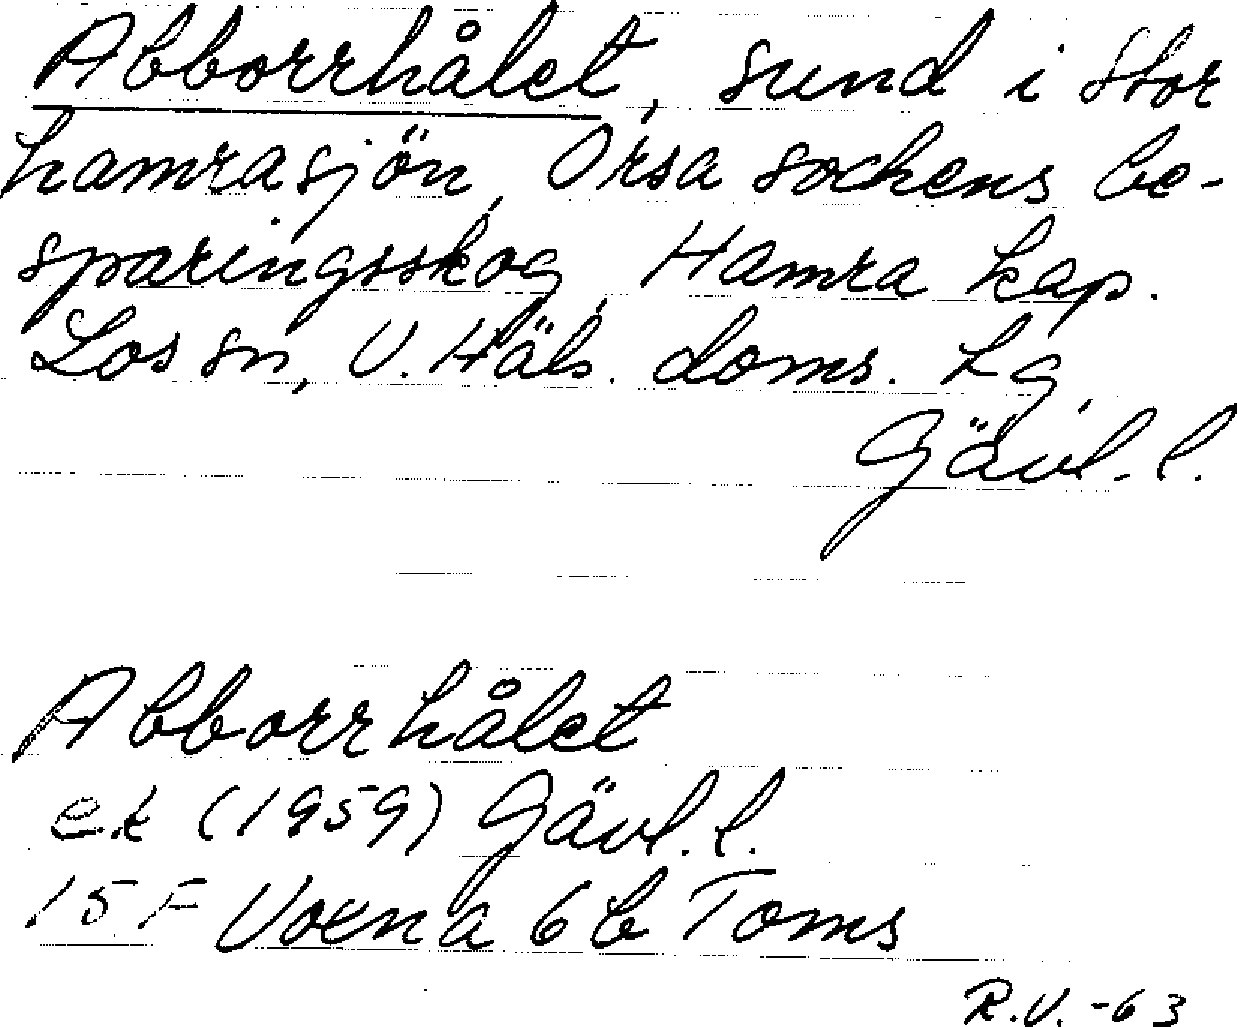 Abborrhålet, sund i Stor
hamrasjön, Orsa sockens be-
sparingsskog, Hamra kap.
Los sn, V. Häls. doms. Lg,
Gävl. l.
Abborrhålet
ek (1959) Gävl. l.
15 F Voxna 6 b Toms
R.V. -63